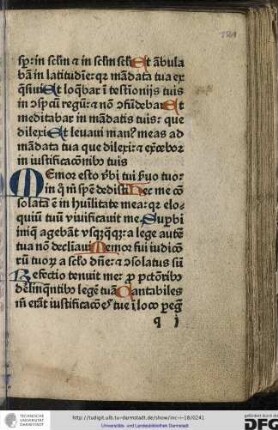 sp: in sclm et in sclm scli Et ābula
bā in latitudīe: qr mādata tua ex
q̄siui Et loq̄bar ī testīonijs tuis
in ɔspcū regū: et nō ɔfūdebar Et
meditabar in mādatis tuis: que
dilexi Et leuaui man⁹ meas ad
mādata tua que dilexi: et exercebor
in iustificacōnibꝰ tuis
Memor esto ṽbi tui ẜuo tuo:
in q̊ m̄ spē dedisti Hec me cō
solata ē in hūilitate mea: qr elo-
quiū tuū viuificauit me Supbi
iniq̄ agebāt vsq̄q̄q̄: a lege autē
tua nō declīaui Memor fui iudicō
rū tuoꝝ a sclo dn̄e: et ɔsolatus sū
Defectio tenuit me: ꝓ pctōribꝰ
derelinq̄ntibꝰ legē tuā Cantabiles
m̄ erāt iustificacōes tue ī loco pegͥ
q j
http://tudigit.ulb.tu-darmstadt.de/show/inc-i-18/0241
Universitäts- und Landesbibliothek Darmstadt
TECHNISCHE
UNIVERSITÄT
DARMSTADT
gefördert durch die
DFG